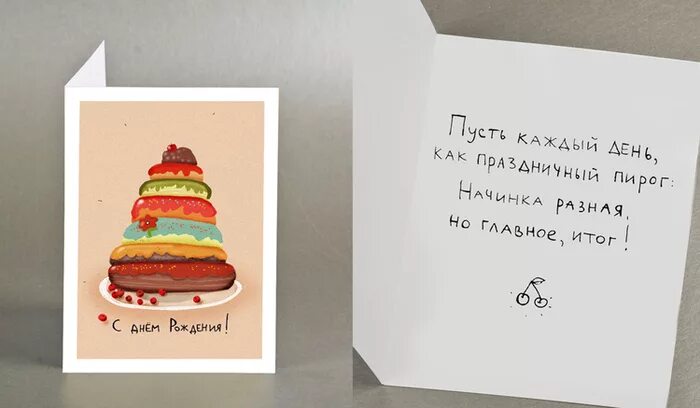 С днём Рождения!
Пусть каждый день,
как праздничный пирог:
Начинка разная,
но главное, итог!